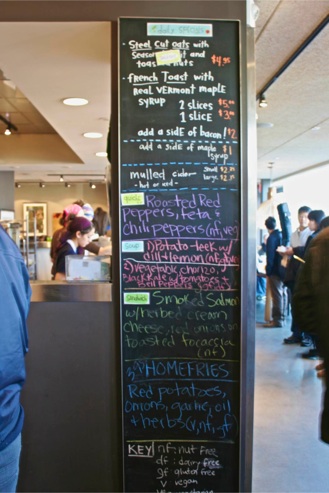 Today's SPECIALS
• Steel Cut oats with
and
toasted nuts $4.95
• French Toast with
real Vermont maple
syrup
2 slices $5.00
1 slice $3.00
add a side of bacon! $2
add a side of maple syrup $1
mulled cider small $2.25
- hot or iced - large $2.75
Roasted Red
Peppers, feta &
chili peppers (nf, veg)
1) Potato-leek w/
dill + lemon (nf,
2) Vegetable chorizo,
black kale w/ tomatoes +
Bell Peppers
Sandwich Smoked Salmon
w/ herbed cream
cheese, red onions on
toasted focaccia
(nf)
HOMEFRIES
Red potatoes,
onions, garlic, oil
+ herbs (v, nf, gf)
KEY nf: nut free
df: dairy free
gf gluten free
V vegan